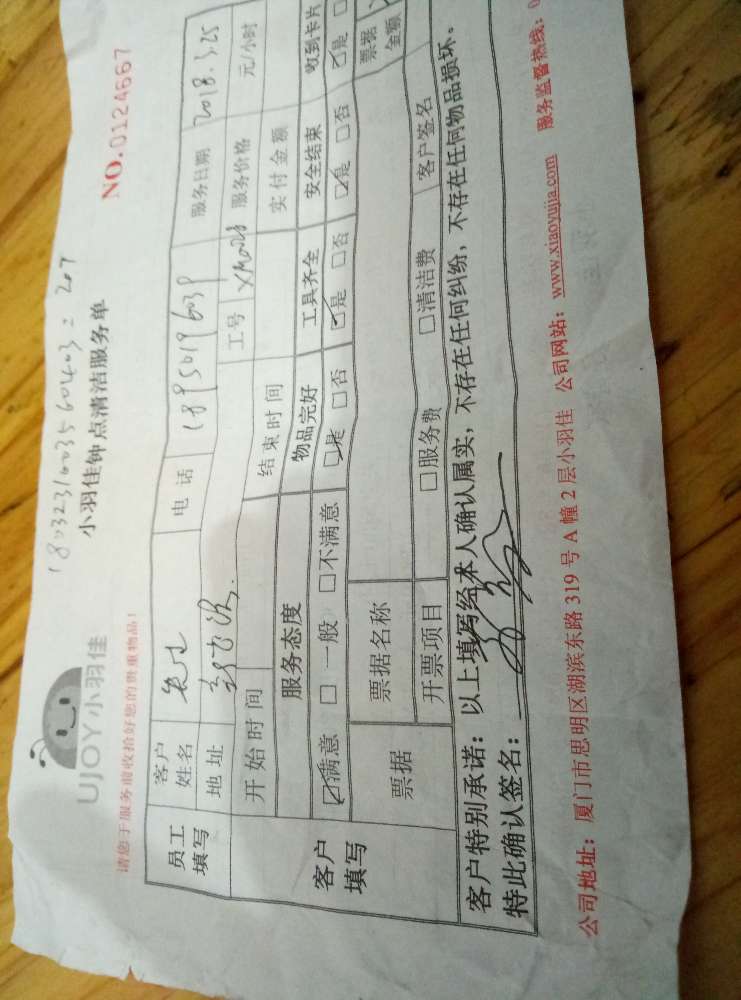 18032316003560403=207
UJOY小羽佳
小羽佳钟点清洁服务单
NO.0124667
请您于服务前收拾好您的贵重物品!
员工填写 客户姓名 电话 18950196039 服务日期 2018.3.25
地址 工号 服务价格 元/小时
开始时间 结束时间 实付金额
客户填写 服务态度 物品完好 工具齐全 安全结束 收到卡片
☑满意 □一般 □不满意 ☑是 □否 ☑是 □否 ☑是 □否 ☑是
票据 票据名称 票据金额
开票项目 □服务费 □清洁费 客户签名
客户特别承诺:以上填写经本人确认属实,不存在任何纠纷,不存在任何物品损坏.
特此确认签名:
公司地址:厦门市思明区湖滨东路319号A幢2层小羽佳 公司网站:www.xiaoyujia.com 服务监督热线:0